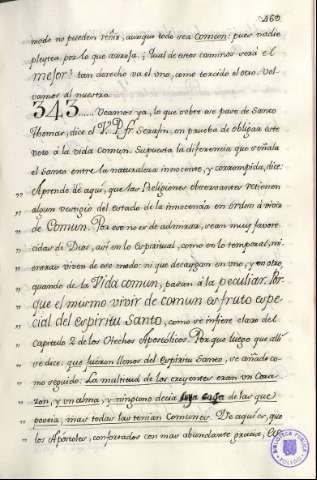 260
modo no pueden reñir, aunque todo sea comun: pues nadie
pleytea por lo que arroja. ¿Qual de estos caminos será el
mejor? tan derecho va el uno, como torcido el otro. Vol-
vamos al nuestro.
343..... Veamos ya, lo que sobre ese pase de Santo
Thomas, dice el V. P. fr. Serafin, en prueba de obligar este
voto á la vida comun. Supuesta la diferencia que señala
el Santo entre la naturaleza innocente, y corrompida, dice:
„ Aprende de aqui, que las Religiones observantes retienen
„ algun vestigio del estado de la innocencia en orden á vivir
„ de Comun. Por eso no es de admirar, sean muy favore-
„ cidas de Dios, asi en lo espiritual, como en lo temporal, mi-
„ entras viven de ese modo: ni que decaygan en uno, y en otro,
„ quando de la Vida comun, pasan á la peculiar. Por-
„ que el mismo vivir de comun es fruto espe-
„ cial del espiritu Santo, como se infiere claro del
„ capitulo 2 de los Hechos Apostolicos. Porque luego que alli
„ se dice: que fuéron llenos del Espiritu Santo, se añade co-
„ mo seguido: La multitud de los creyentes eran un Cora-
„ zon, y un alma, y ninguno decia suya cosa de las que
„ poseia, mas todas las tenian Comunes. De aqui es, que
„ los Apóstoles, confortados con mas abundante gracia,
BIBLIOTECA PUBLICA
TOLEDO